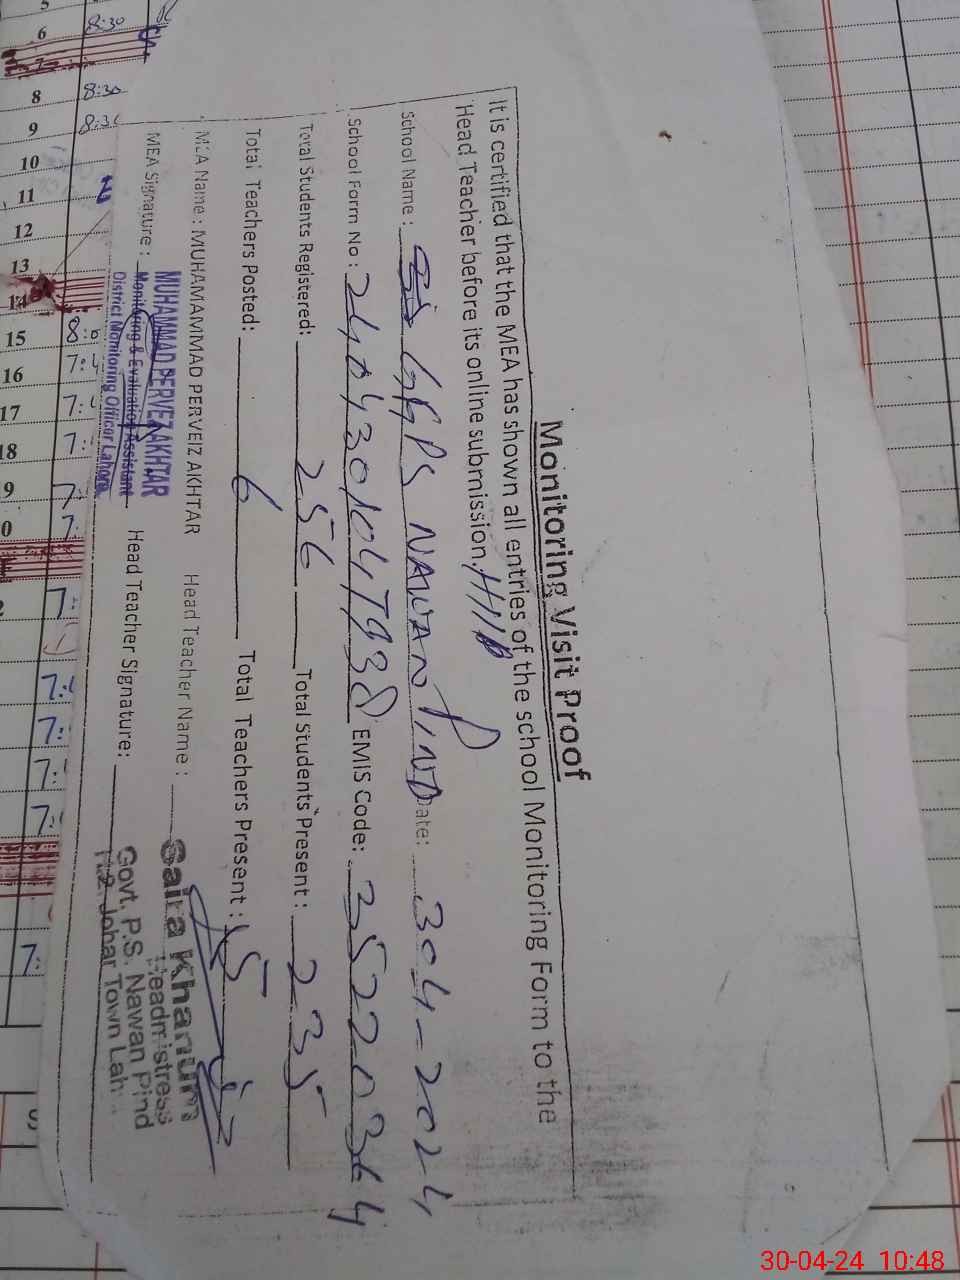 Monitoring Visit Proof
It is certified that the MEA has shown all entries of the school Monitoring Form to the
Head Teacher before its online submission.
School Name : GGPS NAWAN PIND Date: 304-2024
School Form No : 2404301047938 EMIS Code: 35220364
Total Students Registered: 256 Total Students Present : 235
Total Teachers Posted: 6 Total Teachers Present : 5
MEA Name : MUHAMAMMAD PERVEIZ AKHTAR Head Teacher Name :
MEA Signature : Head Teacher Signature:
MUHAMMAD PERVEZ AKHTAR
Monitoring & Evaluation Assistant
District Monitoring Officer Lahore
Saira Khanum
Headmistress
Govt. P.S. Nawan Pind
Johar Town Lah
6 8:30
7
8 8:30
9 8:30
10
11
12
13
14
15
16
17
18
30-04-24 10:48